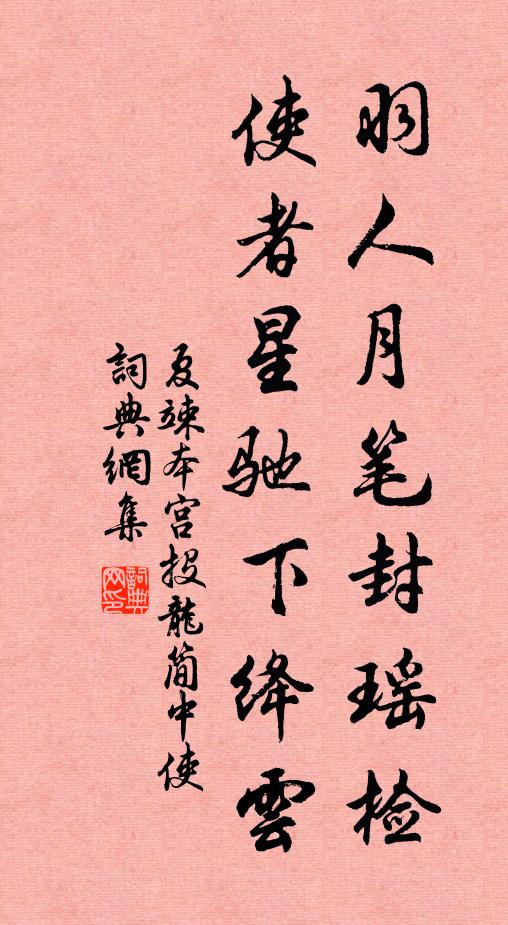 羽人月笔封瑶检
使者星驰下绛雲
夏竦本宫投龍简中使
詞典網集
詞典网印